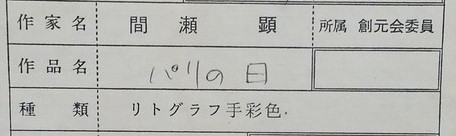 作家名 間瀬 顕 所属 創元会委員
作品名 パリの日
種類 リトグラフ手彩色.